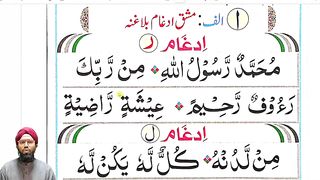 ۱ الف: مشق ادغام بلاغنہ
اِدغام ر
مُحَمَّدٌ رَّسُوْلُ اللهِ مِنْ رَّبِّكَ
رَءُوْفٌ رَّحِيْمٌ عِيْشَةٍ رَّاضِيَةٍ
اِدغام ل
مِنْ لَّدُنْهُ كُلٌّ لَّهٗ يَكُنْ لَّهٗ